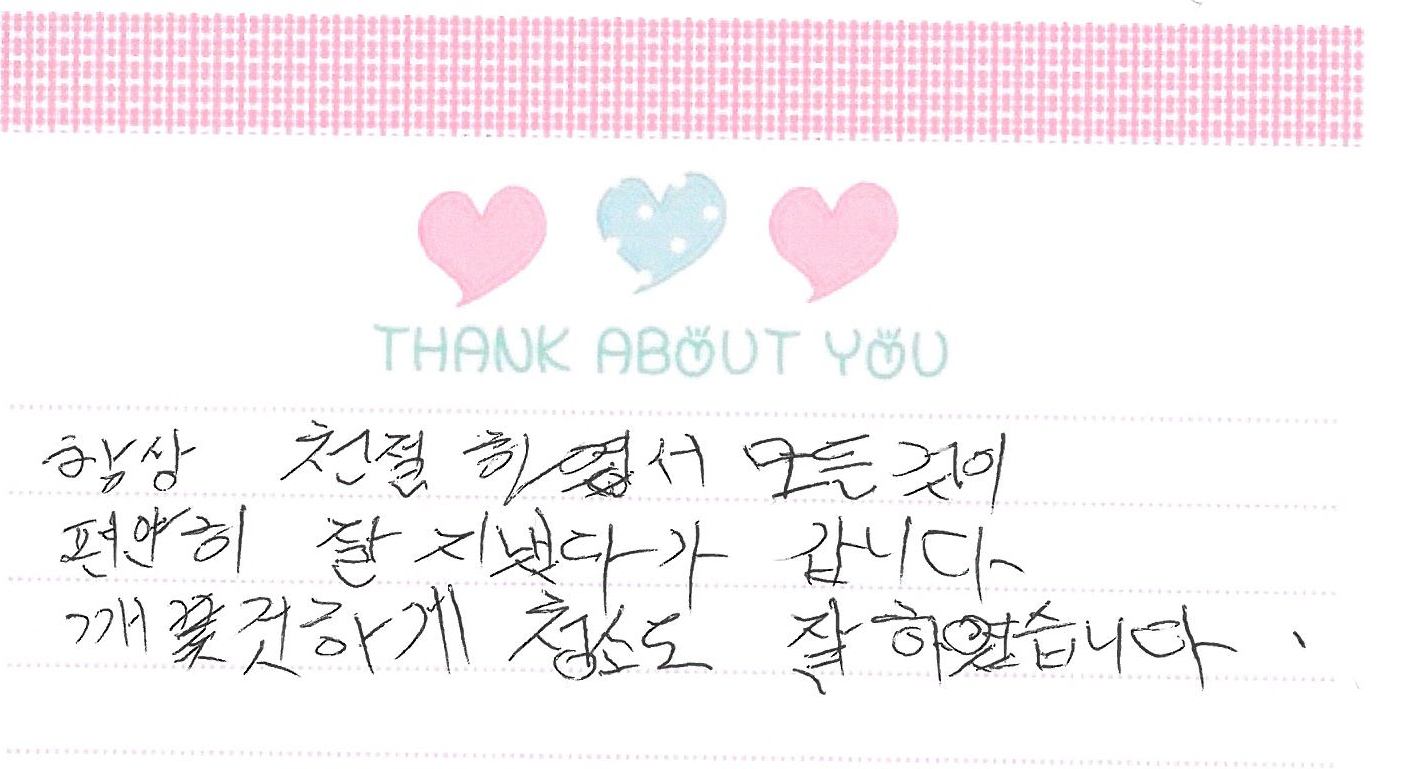 THANK ABOUT YOU
항상 친절하였서 모든것이
편안히 잘 지냈다가 갑니다.
깨꿋것하게 청소도 잘 하였습니다.